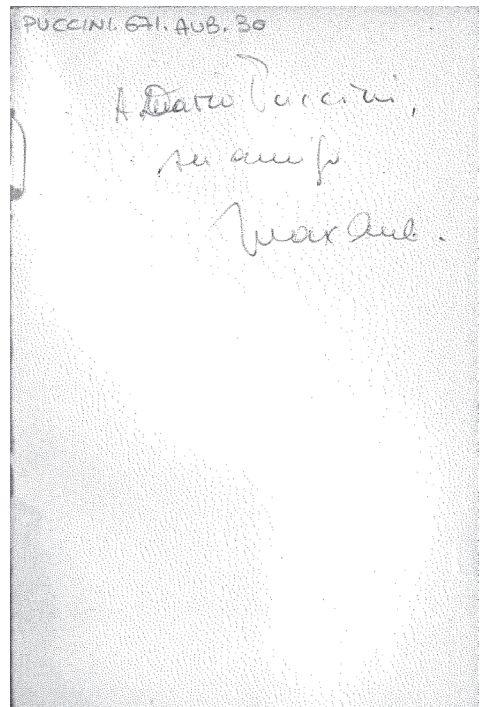 PUCCINI.671.AUB.30
A Dario Puccini,
su amigo
Max Aub.